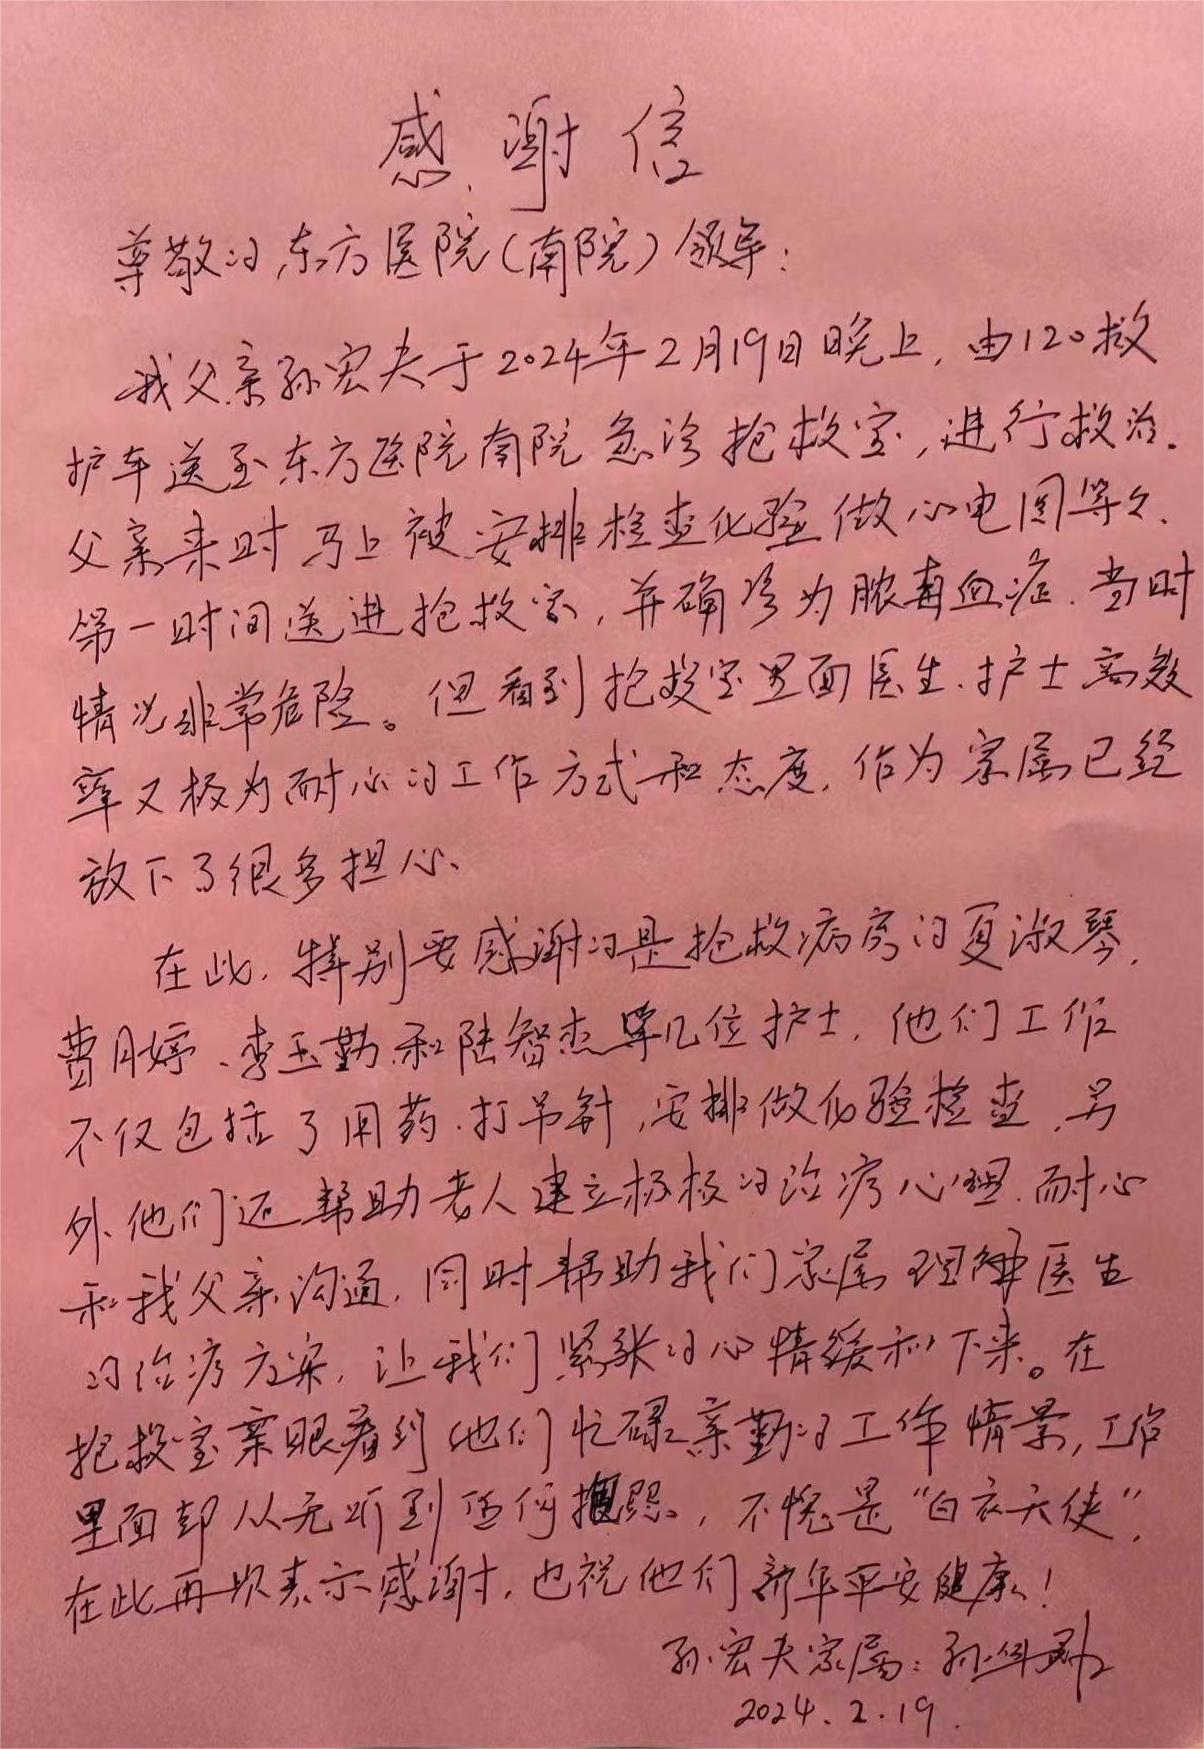 感谢信
尊敬的东方医院（南院）领导：
我父亲孙宏夫于2024年2月19日晚上，由120救
护车送至东方医院南院急诊抢救室，进行救治.
父亲来时马上被安排检查化验做心电图等等.
第一时间送进抢救室，并确诊为脓毒血症.当时
情况非常危险。但看到抢救室里面医生、护士高效
率又极为耐心的工作方式和态度，作为家属已经
放下了很多担心、
在此，特别要感谢的是抢救病房的夏淑琴、
费月婷、李玉勤和陆智杰等几位护士，他们工作
不仅包括了用药、打吊针，安排做化验检查，另
外他们还帮助老人建立极极的治疗心理，耐心
和我父亲沟通，同时帮助我们家属理解医生
的治疗方案，让我们紧张的心情缓和下来。在
抢救室亲眼看到他们忙碌亲勤的工作情景，工作
里面却从无听到任何抱怨，不愧是“白衣天使”，
在此再次表示感谢，也祝他们新年平安健康！
孙宏夫家属：孙
2024.2.19.